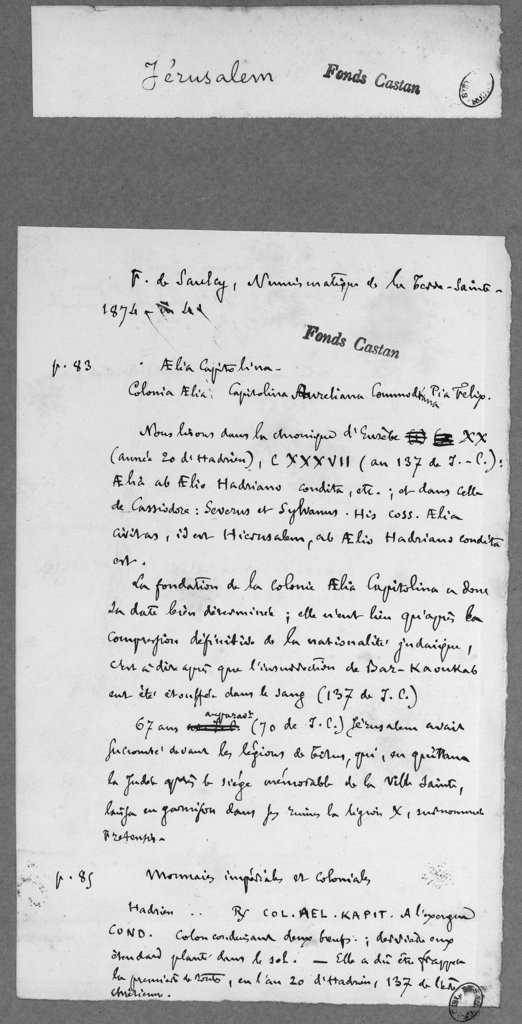 Jérusalem
Fonds Castan
F. de Saulcy, Numismatique de la Terre-Sainte -
1874 - in 4°
Fonds Castan
p. 83
Ælia Capitolina -
Colonia Ælia Capitolina Aureliana Commodiana Pia Felix.
Nous lisons dans la chronique d'Eusèbe XX
(année 20 d'Hadrien), C XXXVII (an 137 de J.-C.) :
Ælia ab Ælio Hadriano condita, etc. ; et dans celle
de Cassiodore : Severus et Sylvanus. His coss. Ælia
civitas, id est Hierusalem, ab Ælio Hadriano condita
est.
La fondation de la colonie Ælia Capitolina a donc
sa date bien déterminée ; elle n'eut lieu qu'après la
compression définitive de la nationalité judaïque,
c'est à dire après que l'insurrection de Bar-Kaoukab
eut été étouffée dans le sang (137 de J.C.)
67 ans auparavt (70 de J.C.) Jérusalem avait
succombé devant les légions de Titus, qui, en quittant
la Judée après le siège mémorable de la Ville Sainte,
laissa en garnison dans ses ruines la légion X, surnommée
Fretensis -
p. 85
Monnaies impériales et coloniales
Hadrien .. R/ COL. AEL. KAPIT. A l'exergue
COND. Colon conduisant deux bœufs ; derrière eux
étendard planté dans le sol. — Elle a dû être frappée
la première de toutes, en l'an 20 d'Hadrien, 137 de l'ère
chrétienne.